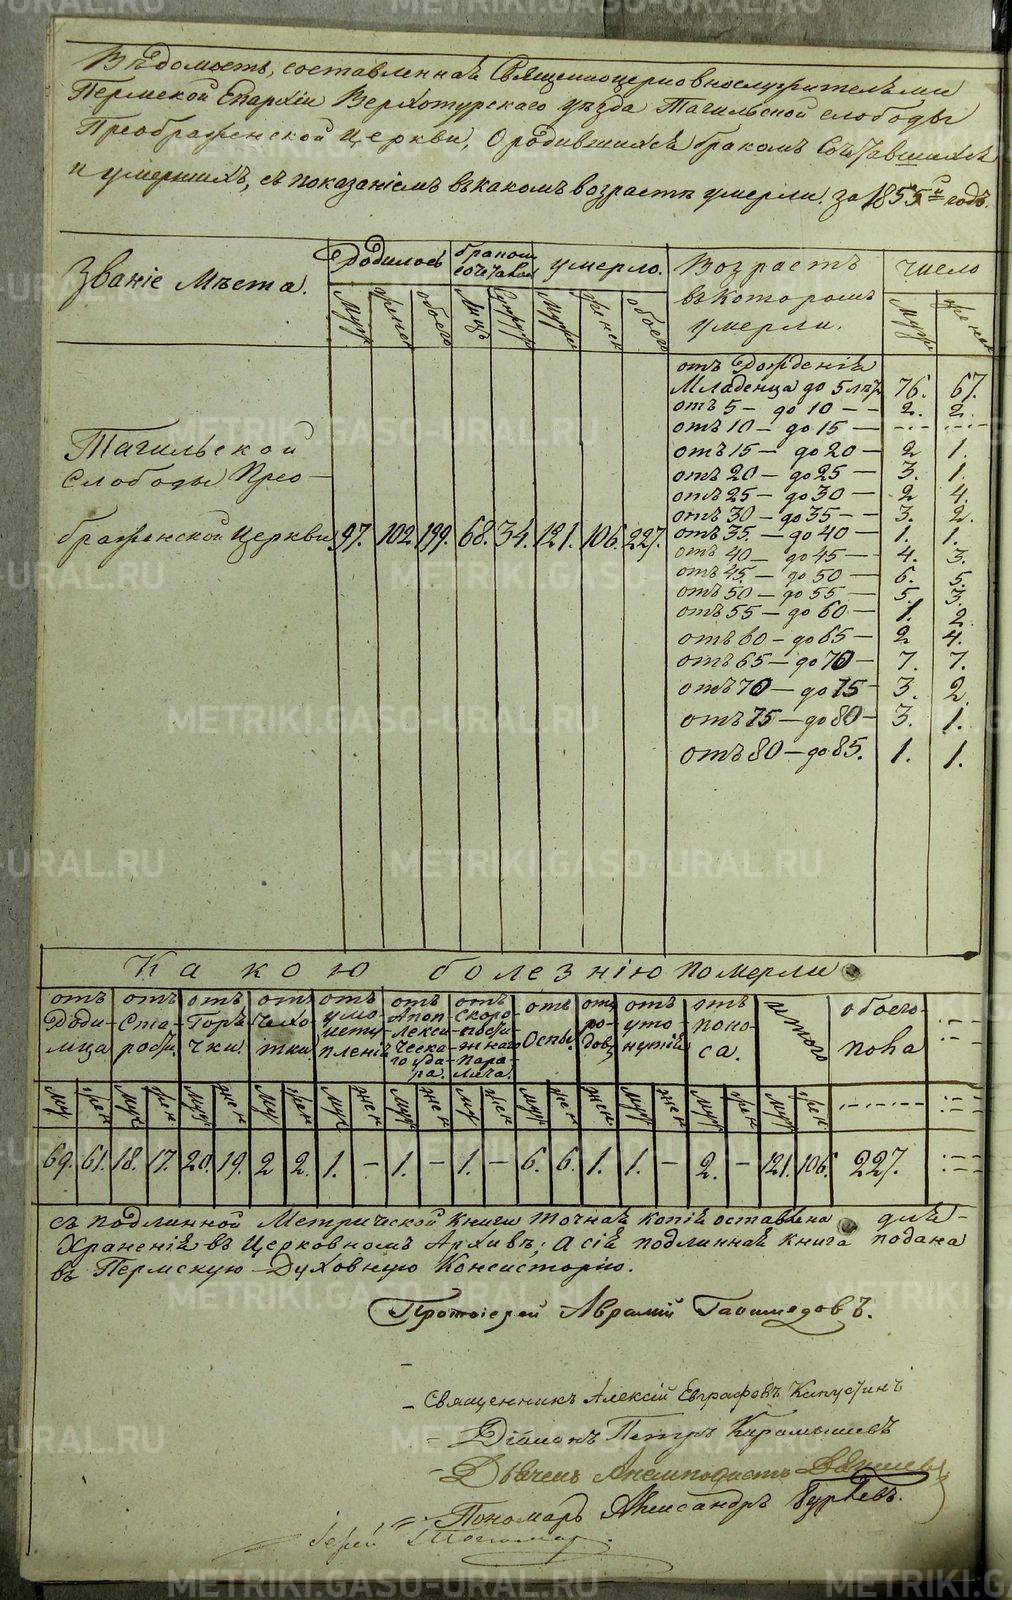 Вѣдомость, составленная Священноцерковнослужителями
Пермской Епархіи Верхотурскаго уѣзда Тагильской слободы
Преображенской Церкви, О родившихся бракомъ Сочетавшихся
и умершихъ, съ показаніемъ въ какомъ возрастѣ умерли. за 1855й годъ.
Званіе Мѣста. Родилось браком сочетавш умерло. Возрастъ въ котором умерли. число
Муж женск обоего Лиц Супруж Муж женск обоего Муж женск
отъ Рожденія
Младенца до 5 лѣт 76. 67.
отъ 5 — до 10 — — 2. 2.
отъ 10 — до 15 — --- ---
отъ 15 — до 20 — 2 1.
отъ 20 — до 25 — 3. 1.
отъ 25 — до 30 — 2 4.
отъ 30 — до 35 — 3. 2.
отъ 35. — до 40 — 1. 1.
отъ 40 — до 45 — 4. 3.
отъ 45 — до 50 — 6. 5.
отъ 50 — до 55 — 5. 3.
отъ 55 — до 60 — 1. 2.
отъ 60 — до 65 — 2 4.
отъ 65 — до 70 — 7. 7.
отъ 70 — до 75 — 3. 2.
отъ 75 — до 80 — 3. 1.
отъ 80 — до 85. 1. 1.
Тагильской
Слободы Прео-
браженской Церкви 97. 102. 199. 68. 34. 121. 106. 227.
Какою болезнію померли
отъ Родимца
отъ Старости.
отъ Горячки
отъ Чехотки
отъ умопления
отъ Апоплексическаго удара.
отъ скоропостижнаго паралича.
отъ Оспы.
отъ родовъ
отъ утонутія
отъ поноса.
итого
обоего пола
Муж жен Муж жен Муж жен Муж жен Муж жен Муж жен Муж жен Муж жен жен Муж жен Муж жен Муж жен
69. 61. 18. 17. 20. 19. 2 2. 1. — 1. — 1. — 6. 6. 1. 1. — 2. — 121. 106. 227.
съ подлинной Метрической книги точная копія оставлена для
Храненія въ Церковномъ Архивѣ; А сія подлинная книга подана
въ Пермскую Духовную Консисторію.
Протоіерей Аврамій Ганимедовъ.
Священникъ Алексій Евграфовъ Капустинъ
Діаконъ Петръ Карамышевъ
Дьячекъ Анемподистъ
Пономарь Александръ Гурьевъ.
METRIKI.GASO-URAL.RU